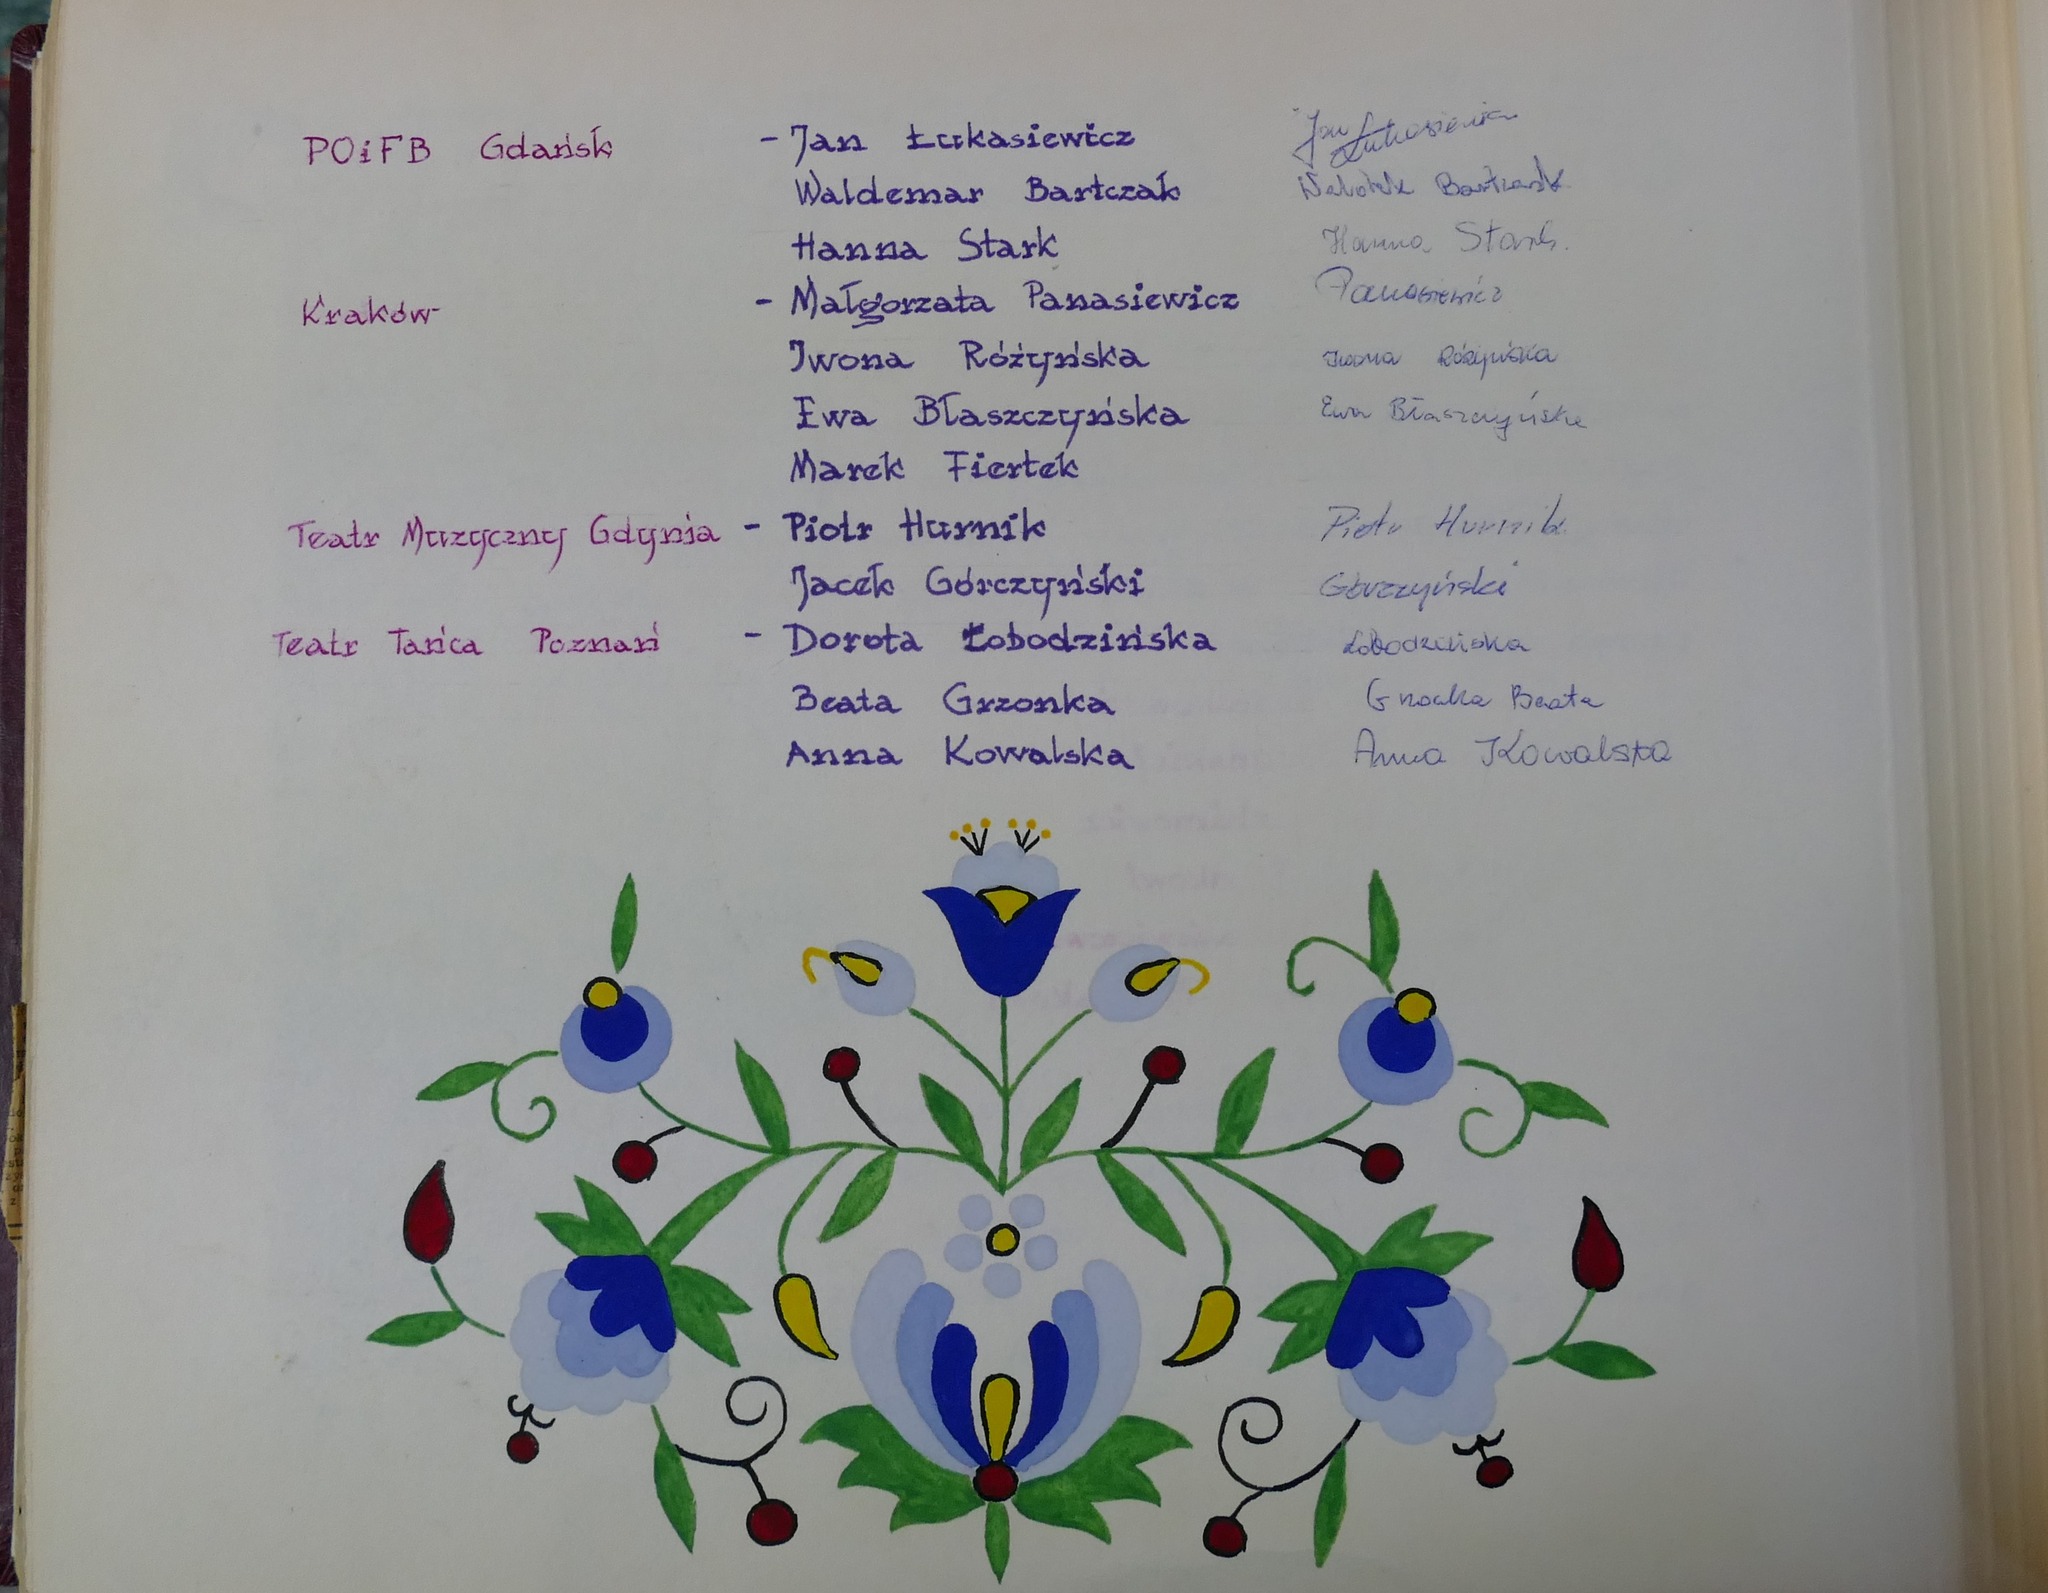 POiFB Gdańsk - Jan Łukasiewicz Jan Łukasiewicz
Waldemar Bartczak Bartczak
Hanna Stark Hanna Stark.
Kraków - Małgorzata Panasiewicz Panasiewicz
Iwona Różyńska Iwona Różyńska
Ewa Błaszczyńska Ewa Błaszczyńska
Marek Fiertek
Teatr Muzyczny Gdynia - Piotr Hurnik Piotr Hurnik
Jacek Górczyński Górczyński
Teatr Tańca Poznań - Dorota Łobodzińska Łobodzińska
Beata Grzonka Grzonka Beata
Anna Kowalska Anna Kowalska